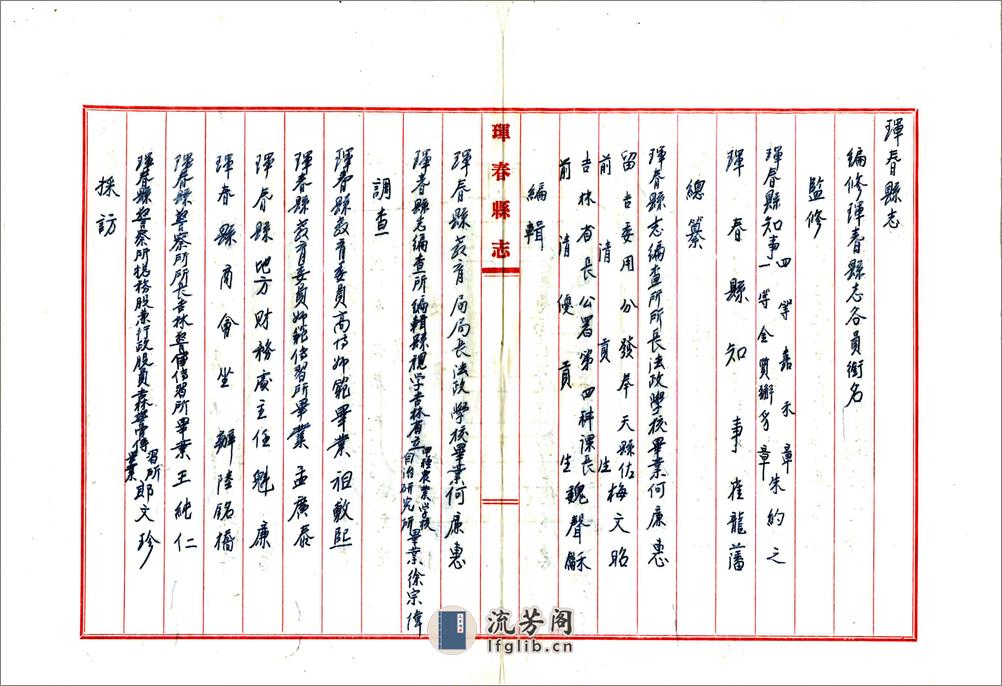 琿春縣志
編修琿春縣志各員銜名
監修
琿春縣知事四等嘉禾章一等金質獅章朱約之
琿春縣知事崔龍藩
總纂
琿春縣志編查所所長法政學校畢業何廉惠
留吉委用分發奉天縣佐前清貢生梅文昭
吉林省長公署第四科課長前清優貢生魏聲龢
琿春縣志
編輯
琿春縣教育局局長法政學校畢業何廉惠
琿春縣志編查所編輯縣視學吉林省立甲種農業學校自治研究所畢業徐宗偉
調查
琿春縣教育委員高等師範畢業祖敷熙
琿春縣教育委員師範傳習所畢業孟廣泰
琿春縣地方財務處主任魁廉
琿春縣商會坐辦陸銘橋
琿春縣警察所所長吉林警官傳習所畢業王純仁
琿春縣警察所總務股兼行政股員吉林警官傳習所畢業郎文珍
採訪
流芳阁
lfglib.cn